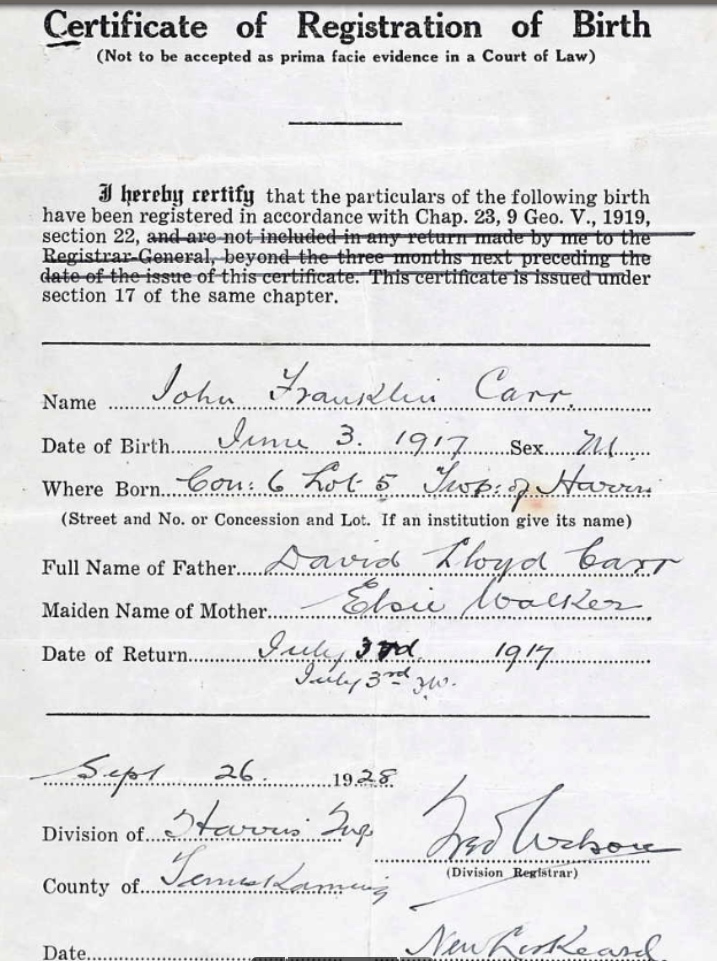 Certificate of Registration of Birth
(Not to be accepted as prima facie evidence in a Court of Law)
I hereby certify that the particulars of the following birth
have been registered in accordance with Chap. 23, 9 Geo. V., 1919,
section 22, and are not included in any return made by me to the
Registrar-General, beyond the three months next preceding the
date of the issue of this certificate. This certificate is issued under
section 17 of the same chapter.
Name John Franklin Carr.
Date of Birth June 3. 1917 Sex M.
Where Born Con: 6 Lot 5 Twp: of Harris
(Street and No. or Concession and Lot. If an institution give its name)
Full Name of Father David Lloyd Carr
Maiden Name of Mother Elsie Walker
Date of Return July 3rd 1917
July 3rd
Sept 26. 1928
Division of Harris Twp
(Division Registrar)
County of Temiskaming
Date New Liskeard